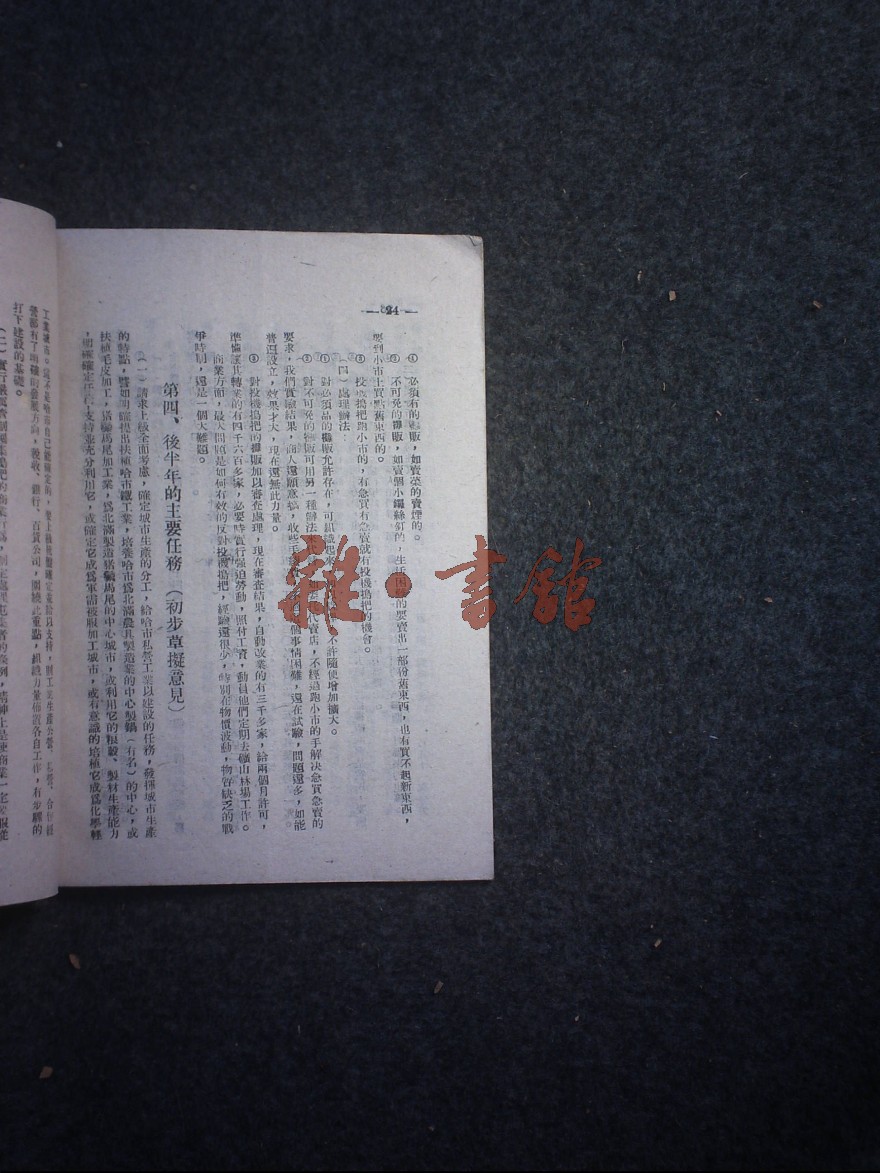 —24—
④ 必須有的攤販，如賣菜的賣煙的。
不可免的攤販，如賣個小鑼絲釘的，生活困難的要賣出一部份舊東西，也有買不起新東西，
要到小市上買點舊東西的。
投機搗把跑小市的，有急買有急賣就有投機搗把的機會。
（四）處理辦法：
① 對必須品的攤販允許存在，可組織起來 不許隨便增加擴大。
對不可免的攤販可用另一種辦法 代賣店，不經過跑小市的手解決急買急賣的
要求，我們實驗結果，商人還願意搞，收些手 個事情困難，還在試驗，問題還多，如能
普遍設立，效果才大，現在還無此力量。
③ 對投機搗把的攤販加以審查處理，現在審查結果，自動改業的有三千多家，給兩個月許可，
準備讓其轉業的有四千六百多家，必要時實行强迫勞動，照付工資，動員他們定期去礦山林場工作。
商業方面，最大問題是如何有效的反對投機搗把，經驗還很少，特別在物價波動，物資缺乏的戰
爭時期，還是一個大難題。
第四、後半年的主要任務 （初步草擬意見）
（一）請求上級全面考慮，確定城市生產的分工，給哈市私營工業以建設的任務，發揮城市生產
的特點，譬如明確提出扶植哈市鐵工業，培養哈市爲北滿農具製造業的中心製鍋（有名）的中心，或
扶植毛皮加工，猪鬃馬尾加工業，爲北滿製造猪鬃馬尾的中心城市，或利用它的粮穀、製材生產能力
，明確確定 支持並充分利用它，或確定它成爲軍需被服加工城市，或有意識的培植它成爲化學輕
工業城市。 哈市自己能確定的，要上級批准確定並給以支持，則工業生產公營、私營、合作經
營都有了明確的發展方向，稅收、銀行、百貨公司，圍繞此重點，組織力量佈置各自工作，有步驟的
打下建設的基礎。
雜·書館